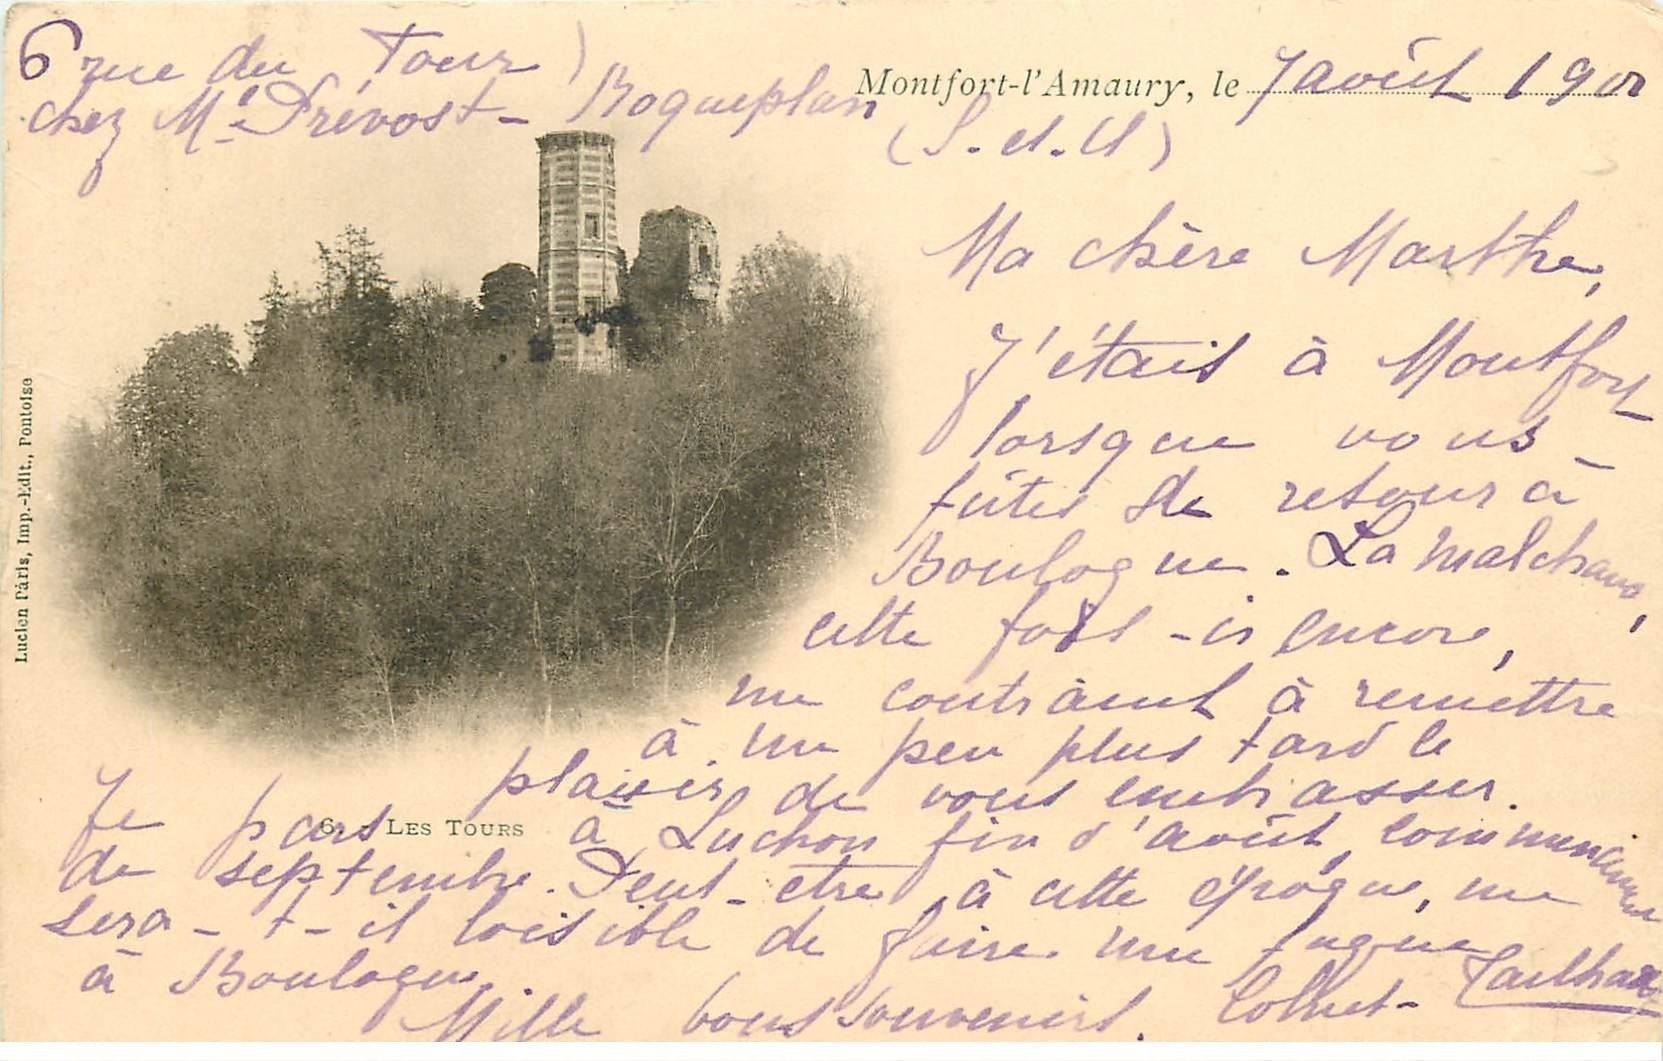 6 rue du Tour)
chez Me Prévost - Roqueplan
Montfort-l'Amaury, le 7 août 190
(S. et. O)
Ma chère Marthe,
J'étais à Montfort
lorsque vous
fûtes de retour à
Boulogne. La malchance,
cette fois-ci encore,
me contraint à remettre
à un peu plus tard le
plaisir de vous embrasser.
Je pars à Luchon fin d'août, commencement
de septembre. Peut-être, à cette époque, me
sera-t-il loisible de faire une fugue
à Boulogne.
Mille bons souvenirs.
6. - LES TOURS
Lucien Pâris, Imp.-Edit., Pontoise